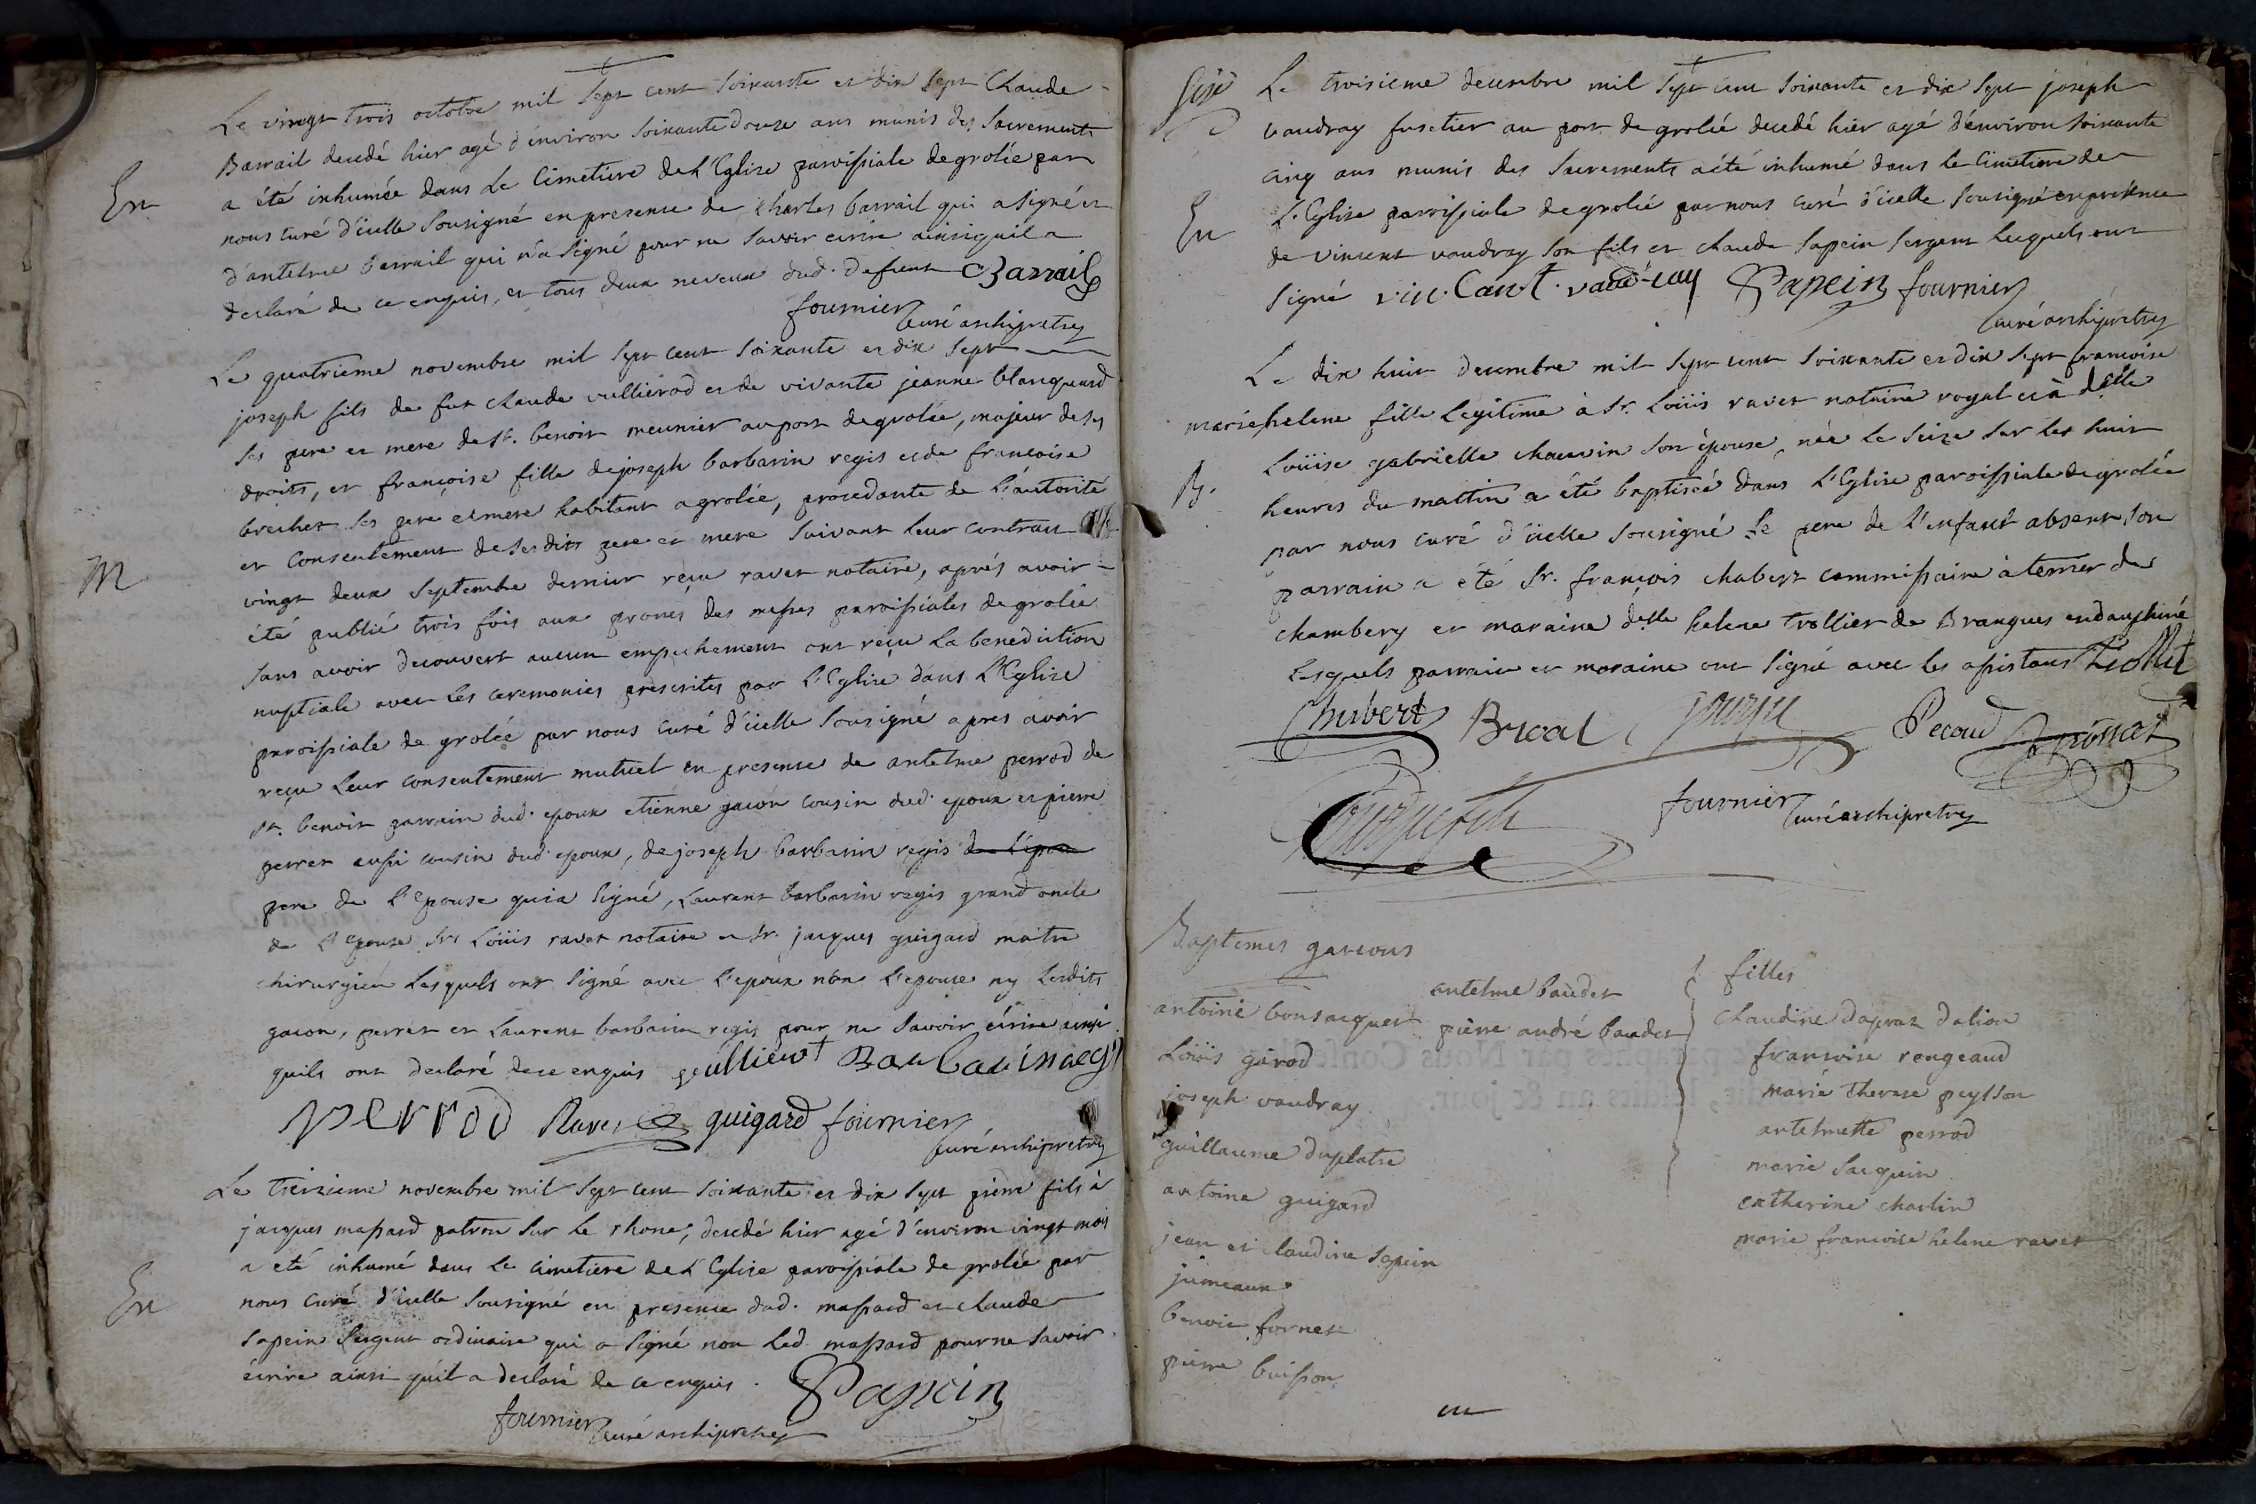 Le vingt trois octobre mil sept cent soixante et dix sept Claude
Barrail decedé hier agé d'environ soixante douze ans munis des sacrements
En
a été inhumée dans Le Cimetiere de L'Eglise paroissiale de grolée par
nous curé d'icelle sousigné en presence de charles barrail qui a signé et
d'antelme barrail qui n'a signé pour ne savoir ecrire ainsi quil a
declaré de ce enquis, et tous deux neveux dud. defunt CBarrail
fournier curé archipretre
Le quatrieme novembre mil sept cent soixante et dix sept
joseph fils de fut claude vullierod et de vivante jeanne blanquard
ses pere et mere de st. benoit meunier au port de grolée, majeur de ses
droits, et françoise fille de joseph barbarin regis et de francoise
brechet ses pere et mere habitant a grolée, procedante de l'autorité
et consentement de ses dits pere et mere suivant leur contrat
M
vingt deux septembre dernier reçu ravet notaire, aprés avoir
été publié trois fois aux prones des messes paroissiales de grolée
sans avoir decouvert aucun empechement ont reçu la benediction
nuptiale avec les ceremonies prescrites par L'Eglise dans L'Eglise
paroissiale de grolée par nous curé d'icelle sousigné apres avoir
reçu leur consentement mutuel en presence de antelme perrod de
st. benoit parrain dud. epoux etienne gacon cousin dud. epoux et pierre
perret aussi cousin dud. epoux, de joseph barbarin regis de l'epou
pere de L'Epouse qui a signé, Laurent barbarin regis grand oncle
de L'Epouse Srs Loüis ravet notaire et Sr. jacques guigard maitre
chirurgien Lesquels ont signé avec l'epoux non L'epouse ny lesdits
gacon, perret et Laurent barbarin regis pour ne savoir écrire ainsi
quils ont declaré de ce enquis vullierot Barbarin regis
perrod Ravet guigard fournier
curé archipretre
Le treizieme novembre mil sept cent soixante et dix sept pierre fils à
jacques massard patron sur le rhone, decedé hier agé d'environ vingt mois
a été inhumé dans le cimetiere de L'Eglise paroissiale de grolée par
En
nous curé d'icelle sousigné en presence dud. massard et claude
sapein sergent ordinaire qui a signé non led. massard pour ne savoir
écrire ainsi qu'il a declaré de ce enquis. Sapein
fournier curé archipretre
Le troisieme decembre mil sept cent soixante et dix sept joseph
vaudray fusetier au port de grolée decedé hier agé d'environ soixante
cinq ans munis des sacrements a été inhumé dans le cimetiere de
En
L'Eglise paroissiale de grolée par nous curé d'icelle sousigné en présence
de vincent vaudray son fils et claude sapein sergent lesquels ont
signé vincant vaudray Sapein fournier
curé archipretre
Le dix huit decembre mil sept cent soixante et dix sept francoise
marie helene fille Legitime à Sr. Loüis ravet notaire royal et à delle
Loüise gabrielle chauvin son épouse, née le seize sur les huit
B.
heures du mattin a été baptisée dans L'Eglise paroissiale de grolée
par nous curé d'icelle sousigné Le pere de L'enfant absent, son
parrain a été Sr. françois chabert commissaire à terrier de
chambery et maraine delle helene trollier de Brangues en dauphiné
Lesquels parrain et maraine ont signé avec les assistans
Chabert Pecoud
fournier curé archipretre
Baptemes garcons
antoine bonsacquet
Loüis girod
joseph vaudray
guillaume duplatre
antoine guigard
jean et claudine sapein
jumeaux
benoit fornet
pierre buisson
antelme baudet
pierre andré baudet
filles
Claudine dupraz dalion
francoise rengeaud
marie therese peysson
antelmette perrod
marie sarquin
catherine charlin
marie francoise helene ravet